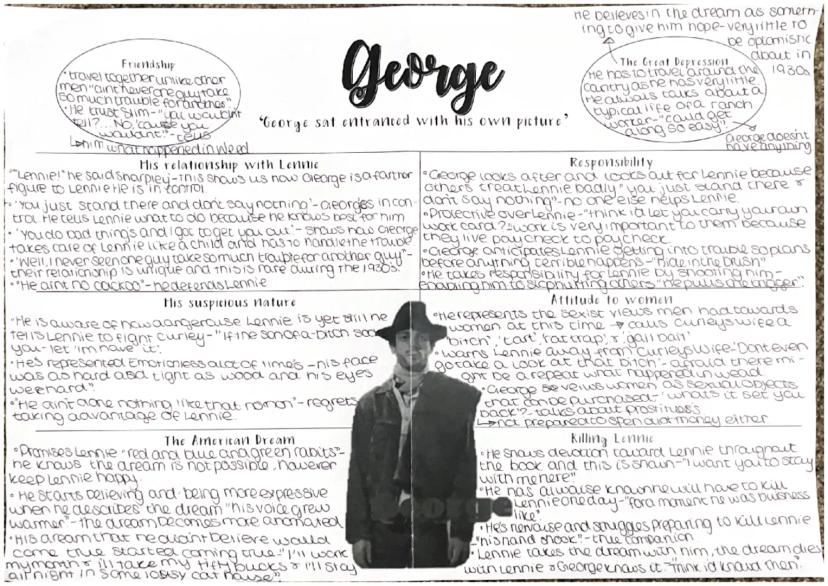 George
'George sat entranced with his own picture'
Friendship
•travel together unlike other
men "aint never one guy take
so much trouble for another"
•He trust slim- "you wouldn't
tell?... No 'course you
wouldn't" - tells
him what happened in Weed
He believes in the dream as someth-
ing to give him hope - very little to
be optomistic
about in
1930s
The Great Depression
He has to travel around the
country as he has very little
He always talks about a
typical life of a ranch
worker - "could get
along so easy"
George doesn't
have anything
His relationship with Lennie
•"Lennie!" he said sharpley - this shows us how George is a father
figure to Lennie. He is in control
•'You just stand there and don't say nothing' - George is in con-
trol. He tells Lennie what to do because he knows best for him
•'You do bad things and I got to get you out' - shows how George
takes care of Lennie like a child and has to handle the trouble
•'Well, I never seen one guy take so much trouble for another guy" -
their relationship is unique and this is rare during the 1930s.
•"He aint no cuckoo" - he defends Lennie
Responsibility
•George looks after and looks out for Lennie because
others treat Lennie badly "you just stand there &
don't say nothing" - no one else helps Lennie.
•Protective over Lennie - "think id let you carry your own
work card?" work is very important to them because
they live paycheck to paycheck
•George anticipates Lennie getting into trouble so plans
before anything terrible happens - "hide in the brush"
•He takes responsibility for Lennie by shooting him -
enabling him to stop hurting others "He pulls the trigger"
His suspicious nature
•He is aware of how dangerouse Lennie is yet still he
tells Lennie to fight curley - "If the son of a bitch socks
you - let 'im have it'.
•He's represented Emotionless alot of times - his face
was as hard and tight as wood and his eyes
were hard".
•"He aint done nothing like that no mor' - regrets
taking advantage of Lennie.
Attitude to women
•He represents the sexist views men had towards
women at this time → calls Curleys wife a
'bitch', 'tart', 'rat trap', & 'jail bait'
•warns Lennie away from Curleys wife- 'Dont even
go take a look at that bitch' - afraid there mi-
ght be a repeat what happened in weed
•George se views women as sexual objects
that can be purchased - 'whats it set you
back?' - talks about prostituss
not prepared to spend alot money either
The American Dream
•Promises Lennie "red and blue and green rabits" -
he knows the dream is not possible, however
keep Lennie happy.
•He starts believing and being more expressive
when he describes the dream "his voice grew
warmer" - the dream becomes more animated
•His dream that he didn't believe would
come true started coming true - "I'll work
my month & i'll take my fifty bucks & i'll stay
all night in some lousy cat house"
Killing Lennie
•He shows devotion toward Lennie throughout
the book and this is shown - "I want you to stay
with me here"
•He has alwaise known he will have to kill
Lennie one day - "For a moment he was business
like".
•He's nervouse and struggles preparing to kill Lennie
"his hand shook" - true companion
•Lennie takes the dream with him, the dream dies
with Lennie & George knows it. "think id knowd then"
George